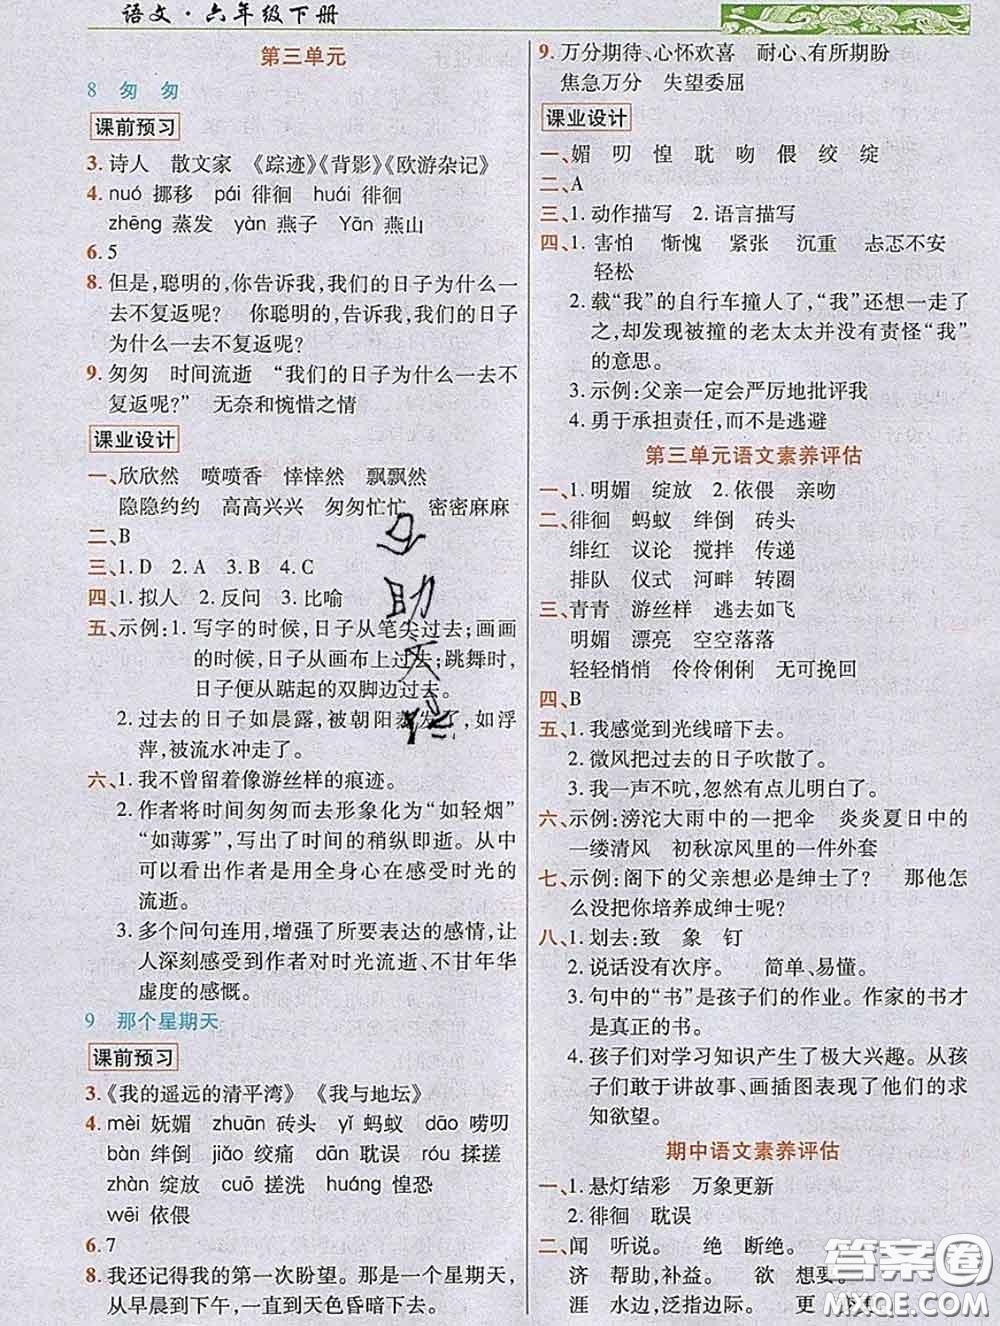 语文·六年级下册
第三单元
8 匆匆
课前预习
3. 诗人 散文家 《踪迹》《背影》《欧游杂记》
4. nuó 挪移 pái 徘徊 huái 徘徊
zhēng 蒸发 yàn 燕子 Yān 燕山
6. 5
8. 但是,聪明的,你告诉我,我们的日子为什么一
去不复返呢? 你聪明的,告诉我,我们的日子
为什么一去不复返呢?
9. 匆匆 时间流逝 “我们的日子为什么一去不
复返呢?” 无奈和惋惜之情
课业设计
一、欣欣然 喷喷香 悻悻然 飘飘然
隐隐约约 高高兴兴 匆匆忙忙 密密麻麻
二、B
三、1. D 2. A 3. B 4. C
四、1. 拟人 2. 反问 3. 比喻
五、示例:1. 写字的时候,日子从笔尖过去;画画
的时候,日子从画布上过去;跳舞时,
日子便从踮起的双脚边过去。
2. 过去的日子如晨露,被朝阳蒸发了,如浮
萍,被流水冲走了。
六、1. 我不曾留着像游丝样的痕迹。
2. 作者将时间匆匆而去形象化为“如轻烟”
“如薄雾”,写出了时间的稍纵即逝。从中
可以看出作者是用全身心在感受时光的
流逝。
3. 多个问句连用,增强了所要表达的感情,让
人深刻感受到作者对时光流逝、不甘年华
虚度的感慨。
9 那个星期天
课前预习
3.《我的遥远的清平湾》《我与地坛》
4. mèi 妩媚 zhuān 砖头 yǐ 蚂蚁 dāo 唠叨
bàn 绊倒 jiǎo 绞痛 dān 耽误 róu 揉搓
zhàn 绽放 cuō 搓洗 huáng 惶恐
wēi 依偎
6. 7
8. 我还记得我的第一次盼望。那是一个星期天,
从早晨到下午,一直到天色昏暗下去。
9. 万分期待、心怀欢喜 耐心、有所期盼
焦急万分 失望委屈
课业设计
一、媚 叨 惶 耽 吻 偎 绞 绽
二、A
三、1. 动作描写 2. 语言描写
四、1. 害怕 惭愧 紧张 沉重 忐忑不安
轻松
2. 载“我”的自行车撞人了,“我”还想一走了
之,却发现被撞的老太太并没有责怪“我”
的意思。
3. 示例:父亲一定会严厉地批评我
4. 勇于承担责任,而不是逃避
第三单元语文素养评估
一、1. 明媚 绽放 2. 依偎 亲吻
二、徘徊 蚂蚁 绊倒 砖头
绯红 议论 搅拌 传递
排队 仪式 河畔 转圈
三、青青 游丝样 逃去如飞
明媚 漂亮 空空落落
轻轻悄悄 伶伶俐俐 无可挽回
四、B
五、1. 我感觉到光线暗下去。
2. 微风把过去的日子吹散了。
3. 我一声不吭,忽然有点儿明白了。
六、示例:滂沱大雨中的一把伞 炎炎夏日中的
一缕清风 初秋凉风里的一件外套
七、示例:阁下的父亲想必是绅士了? 那他怎
么没把你培养成绅士呢?
八、1. 划去:致 象 钉
2. 说话没有次序。 简单、易懂。
3. 句中的“书”是孩子们的作业。作家的书才
是真正的书。
4. 孩子们对学习知识产生了极大兴趣。从孩
子们敢于讲故事、画插图表现了他们的求
知欲望。
期中语文素养评估
一、1. 悬灯结彩 万象更新
2. 徘徊 耽误
二、闻 听说。 绝 断绝。
济 帮助,补益。 欲 想要。
涯 水边,泛指边际。 更
答案圈
MXQE.COM